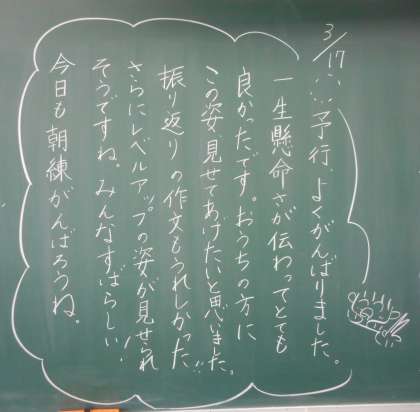 3/17
予行、よくがんばりました。
一生懸命さが伝わってとても
良かったです。おうちの方に
この姿、見せてあげたいと思いました。
振り返りの作文もうれしかった!!
さらにレベルアップの姿が見せられ
そうですね。みんなすばらしい!
今日も朝練がんばろうね。